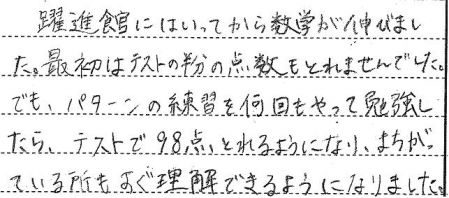 躍進館にはいってから数学が伸びまし
た。最初はテストの半分の点数もとれませんでした。
でも、パターンの練習を何回もやって勉強し
たら、テストで98点とれるようになり、まちがっ
ている所もすぐ理解できるようになりました。